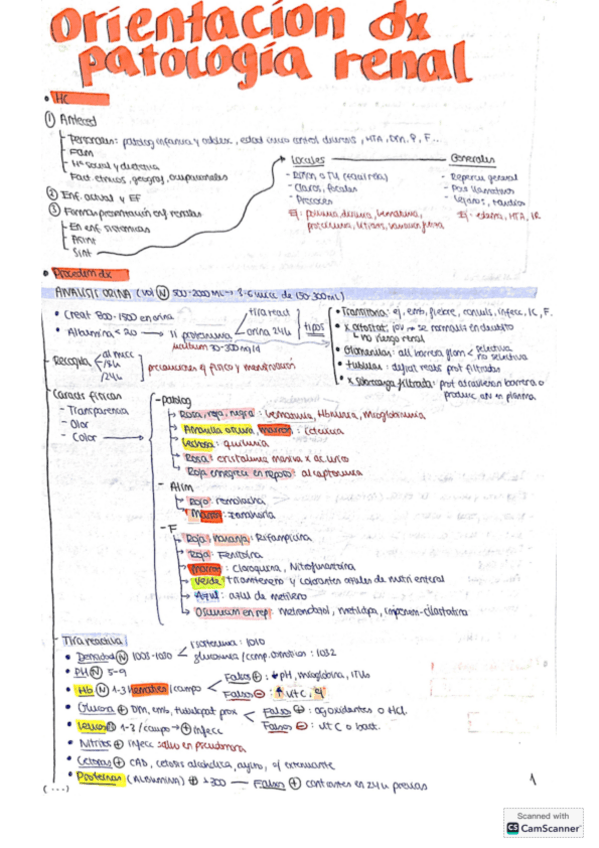 Orientación dx
patología renal
• HC
① Anteced
Personales: patolog infancia y adolesc, edad inicio control diuresis, HTA, DM, P, F...
Fam
Hª social y dietética
Fact. étnicos, geográf, ocupacionales
② Enf. actual y EF
③ Formas presentación enf renales
En enf. sistémicas
Asint
Sint
Locales
- Riñón o TU (requerida)
- Claros, focales
- Precoces
Ej: poliuria, disuria, hematuria,
Generales
- Repercu general
- Poco llamativos
- Lejanos, tardíos
Ej: edema, HTA, IR
• Procedim dx
ANÁLISIS ORINA (vol Ⓝ 500-2000 mL → 3-6 micc de 150-300mL)
• Creat 800-1500 en orina
• Albúmina < 20 → ⇈ proteinuria
tira react
orina 24h
tipos
μalbum 30-300 mg/d
• Transitoria: ej. emb, fiebre, convuls, infecc, IC, F.
• x ortostat: jov → se normaliza en decúbito
↳ no riesgo renal
• Glomerular: alt barrera glom < selectiva
no selectiva
• tubular: defect reabs prot filtradas
• x sobrecarga filtrada: prot atraviesan barrera o
produce aN en plasma
- Recogida
al micc
24h
precauciones ej físico y menstruación
- Caract físicas
- Transparencia
- Olor
- Color
- patolog
Rosa, roja, negra: hematuria, Hbinuria, mioglobinuria
Amarilla oscura, marrón: coluria
Lechosa: quiluria
Rosa: cristaluria masiva x ac úrico
Roja ennegrece en reposo: alcaptonuria
- Alim
Rojo: remolacha
Marrón: zanahoria
- F
Roja naranja: Rifampicina
Roja: Fenitoína
Marrón: cloroquina, Nitrofurantoína
Verde: triamtereno y colorantes azules de nutri enteral
Azul: azul de metileno
Oscurecen en rep: metronidazol, metildopa, imipenem-cilastatina
- Tira reactiva
• Densidad Ⓝ 1003-1030
isostenuria: 1010
• PH Ⓝ 5-9
• Hb Ⓝ 1-3 Hematíes/campo
Falso ⊕: ↓pH, mioglobina, ITUs
Falso ⊖: ↑ vit C, ej
• Glucosa ⊕ DM, emb, tubulopat prox
Falso ⊕: ag oxidantes o HCl
Falso ⊖: vit C o bact.
• Leucos Ⓝ 1-3 /campo → ⊕ infecc
• Nitritos ⊕ infecc salvo en pseudomona
• Cetonas ⊕ CAD, cetosis alcohólica, ayuno, ej extenuante
• Proteínas (ALBÚMINA) ⊕
Falso ⊕ contrastes en 24h previas
(...)
1
Scanned with
CS CamScanner